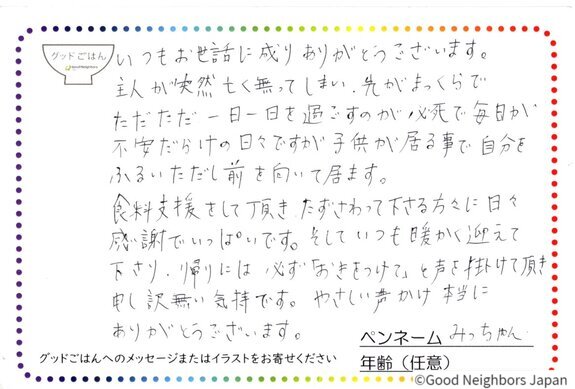 グッドごはん
GoodNeighbors
いつもお世話に成りありがとうございます。
主人が突然亡く無ってしまい、先がまっくらで
ただただ一日一日を過ごすのが必死で毎日が
不安だらけの日々ですが子供が居る事で自分を
ふるいただし前を向いて居ます。
食料支援をして頂き、たずさわって下さる方々に日々
感謝でいっぱいです。そしていつも暖かく迎えて
下さり、帰りには必ず「おきをつけて」と声を掛けて頂き
申し訳無い気持です。やさしい声かけ本当に
ありがとうございます。
ペンネーム みっちゃん
グッドごはんへのメッセージまたはイラストをお寄せください
年齢（任意）
©Good Neighbors Japan